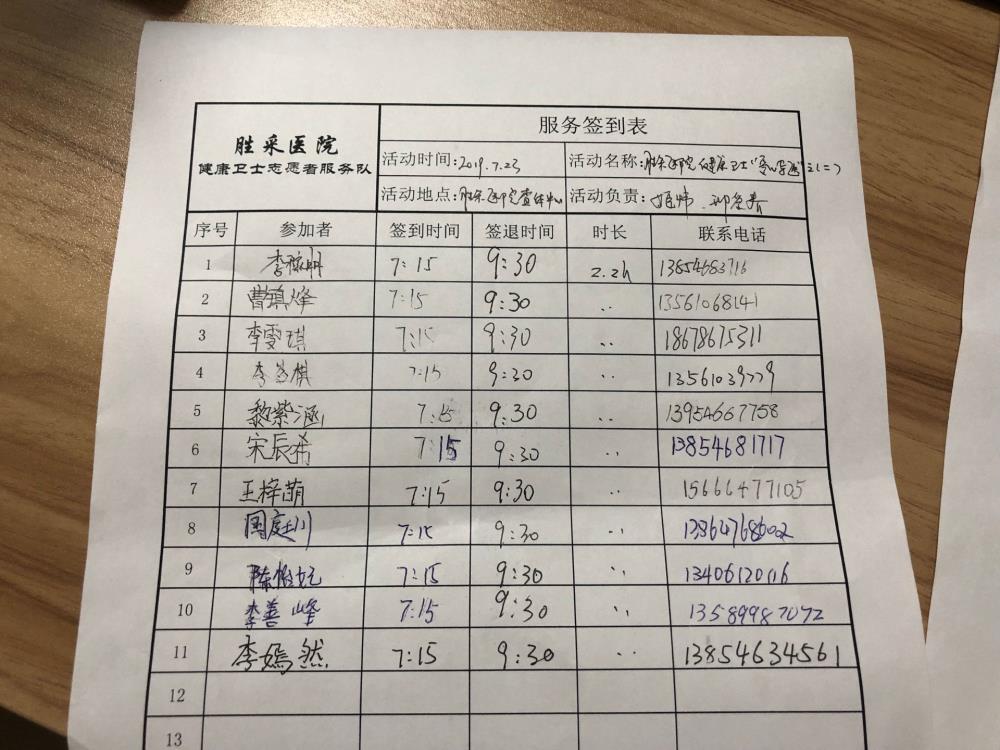 胜采医院
健康卫士志愿者服务队
服务签到表
活动时间:2019.7.23 活动名称:胜采医院健康卫士
活动地点:胜采医院查体中心 活动负责:
序号 参加者 签到时间 签退时间 时长 联系电话
1 李 明 7:15 9:30 2.2h 13854683716
2 曹镇烽 7:15 9:30 ·· 13561068141
3 李雯琪 7:15 9:30 ·· 18678675311
4 李 棋 7:15 9:30 ·· 13561039779
5 黎紫涵 7:15 9:30 ·· 13954667758
6 宋辰希 7:15 9:30 ·· 13854681717
7 王梓萌 7:15 9:30 ·· 15666477105
8 国庭川 7:15 9:30 ·· 13864768002
9 陈怡妃 7:15 9:30 ·· 13406120116
10 李善峰 7:15 9:30 ·· 13589987072
11 李嫣然 7:15 9:30 ·· 13854634561
12
13